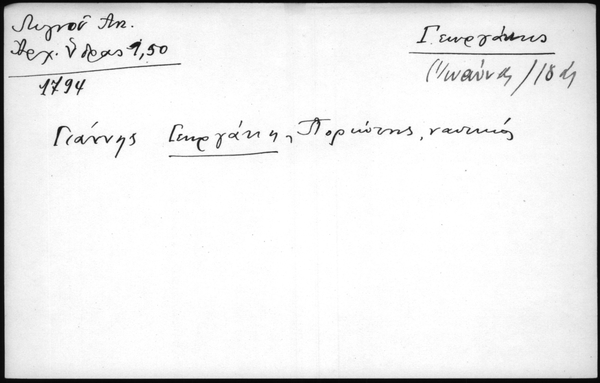 Λιγνοῦ Ἀπ.
Ἀρχ. Ὕδρας 1,50
1794
Γεωργάκης
(Ἰωάννης) 18 αἰ
Γιάννης Γεωργάκη, Ποριώτης, ναυτικός